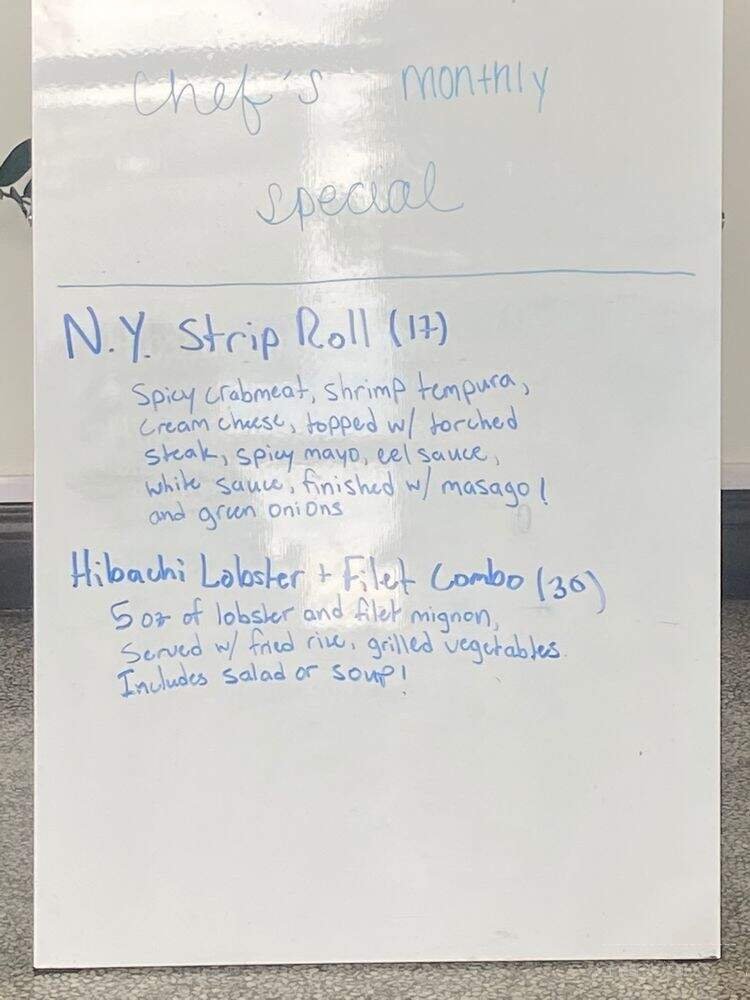 chef's monthly
special
N.Y. Strip Roll (17)
Spicy crabmeat, shrimp tempura,
cream cheese, topped w/ torched
steak, spicy mayo, eel sauce,
white sauce, finished w/ masago!
and green onions
Hibachi Lobster + Filet Combo (36)
5 oz of lobster and filet mignon,
Served w/ fried rice, grilled vegetables.
Includes salad or soup!